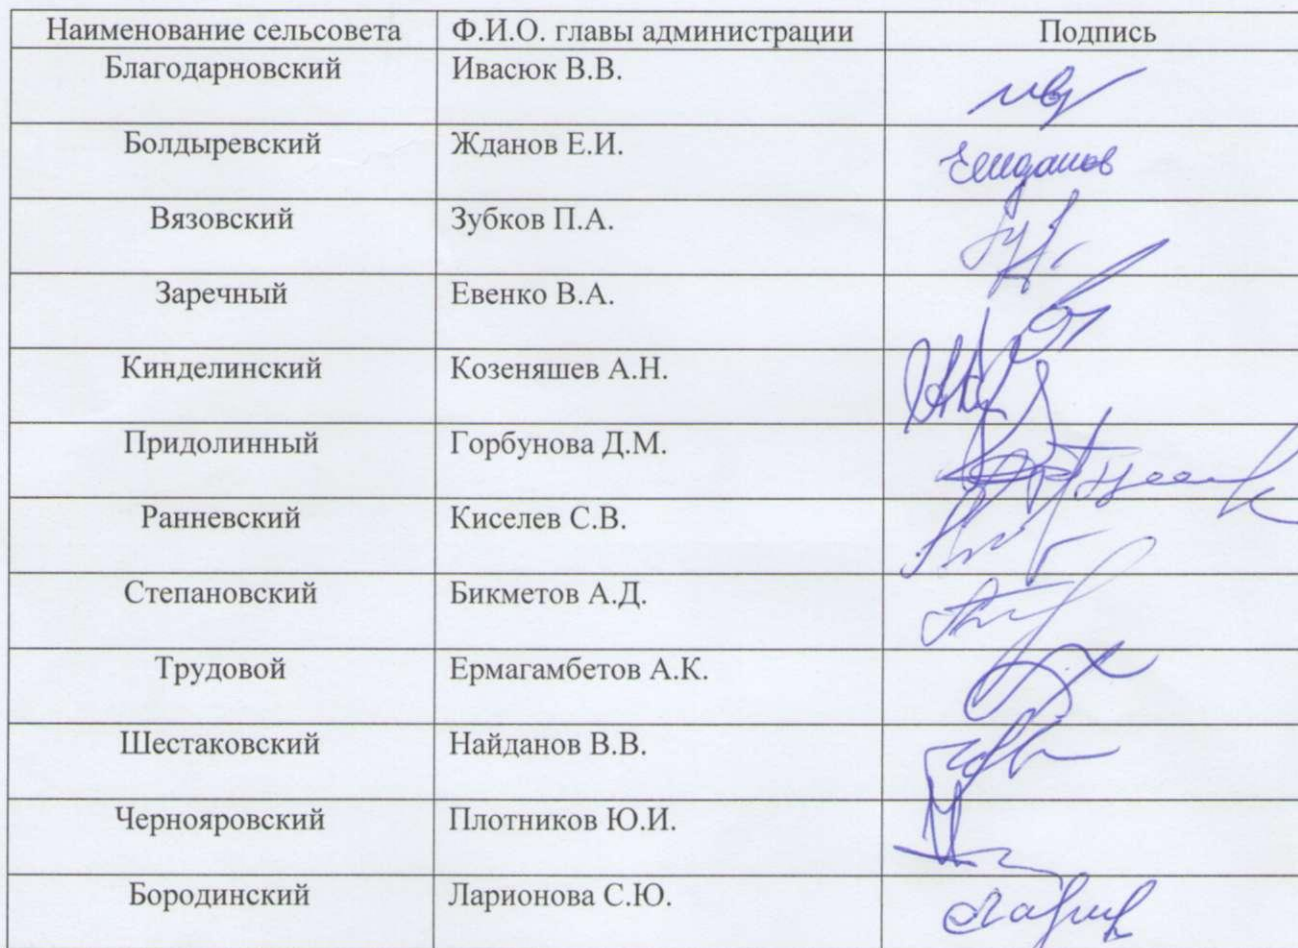 Наименование сельсовета Ф.И.О. главы администрации Подпись
Благодарновский Ивасюк В.В.
Болдыревский Жданов Е.И.
Вязовский Зубков П.А.
Заречный Евенко В.А.
Кинделинский Козеняшев А.Н.
Придолинный Горбунова Д.М.
Ранневский Киселев С.В.
Степановский Бикметов А.Д.
Трудовой Ермагамбетов А.К.
Шестаковский Найданов В.В.
Чернояровский Плотников Ю.И.
Бородинский Ларионова С.Ю.